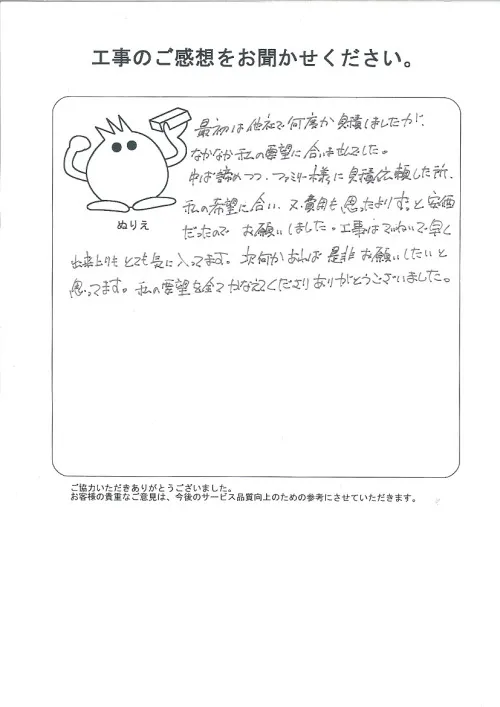 工事のご感想をお聞かせください。
最初は他社で何度か見積しましたが、
なかなか私の要望に合いませんでした。
半ば諦めつつ、ファミリー様に見積依頼した所、
私の希望に合い、又、費用も思ったよりずっと安価
だったので お願いしました。工事はていねいで早く
ぬりえ
出来上りも とても気に入ってます。次何かあれば 是非お願いしたいと
思ってます。私の要望を全てかなえてくださりありがとうございました。
ご協力いただきありがとうございました。
お客様の貴重なご意見は、今後のサービス品質向上のための参考にさせていただきます。